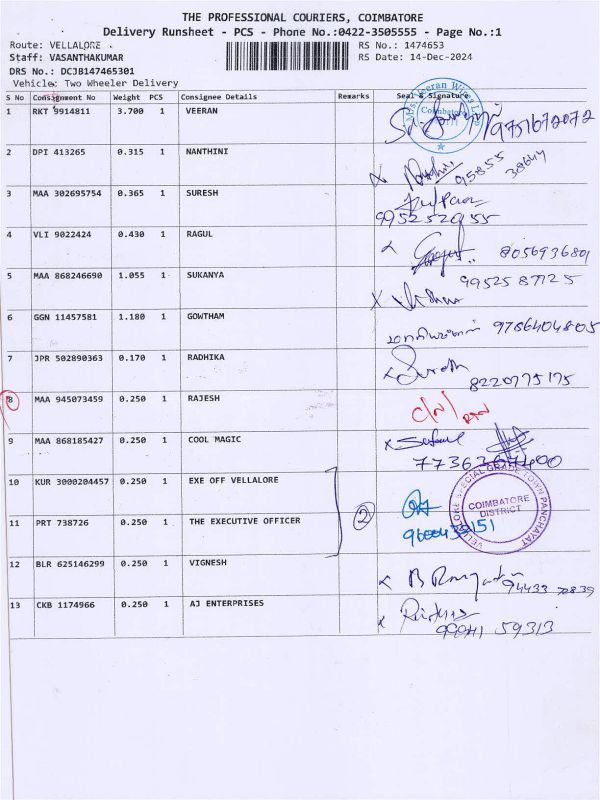 THE PROFESSIONAL COURIERS, COIMBATORE
Delivery Runsheet - PCS - Phone No.:0422-3505555 - Page No.:1
Route: VELLALORE RS No.: 1474653
Staff: VASANTHAKUMAR RS Date: 14-Dec-2024
DRS No.: DCJB147465301
Vehicle: Two Wheeler Delivery
S No Consignment No Weight PCS Consignee Details Remarks Seal & Signature
1 RKT 9914811 3.700 1 VEERAN 9751672072
Coimbatore
2 DPI 413265 0.315 1 NANTHINI 95855 38644
3 MAA 302695754 0.365 1 SURESH
9952520955
4 VLI 9022424 0.430 1 RAGUL 8056936801
5 MAA 868246690 1.055 1 SUKANYA 9952587125
6 GGN 11457581 1.180 1 GOWTHAM 9786404805
7 JPR 502890363 0.170 1 RADHIKA Suresh
8220775175
8 MAA 945073459 0.250 1 RAJESH
9 MAA 868185427 0.250 1 COOL MAGIC
10 KUR 3000204457 0.250 1 EXE OFF VELLALORE
VELLALORE SPECIAL GRADE TOWN PANCHAYAT
COIMBATORE
DISTRICT
2
11 PRT 738726 0.250 1 THE EXECUTIVE OFFICER
12 BLR 625146299 0.250 1 VIGNESH 94433 70839
13 CKB 1174966 0.250 1 AJ ENTERPRISES
59313